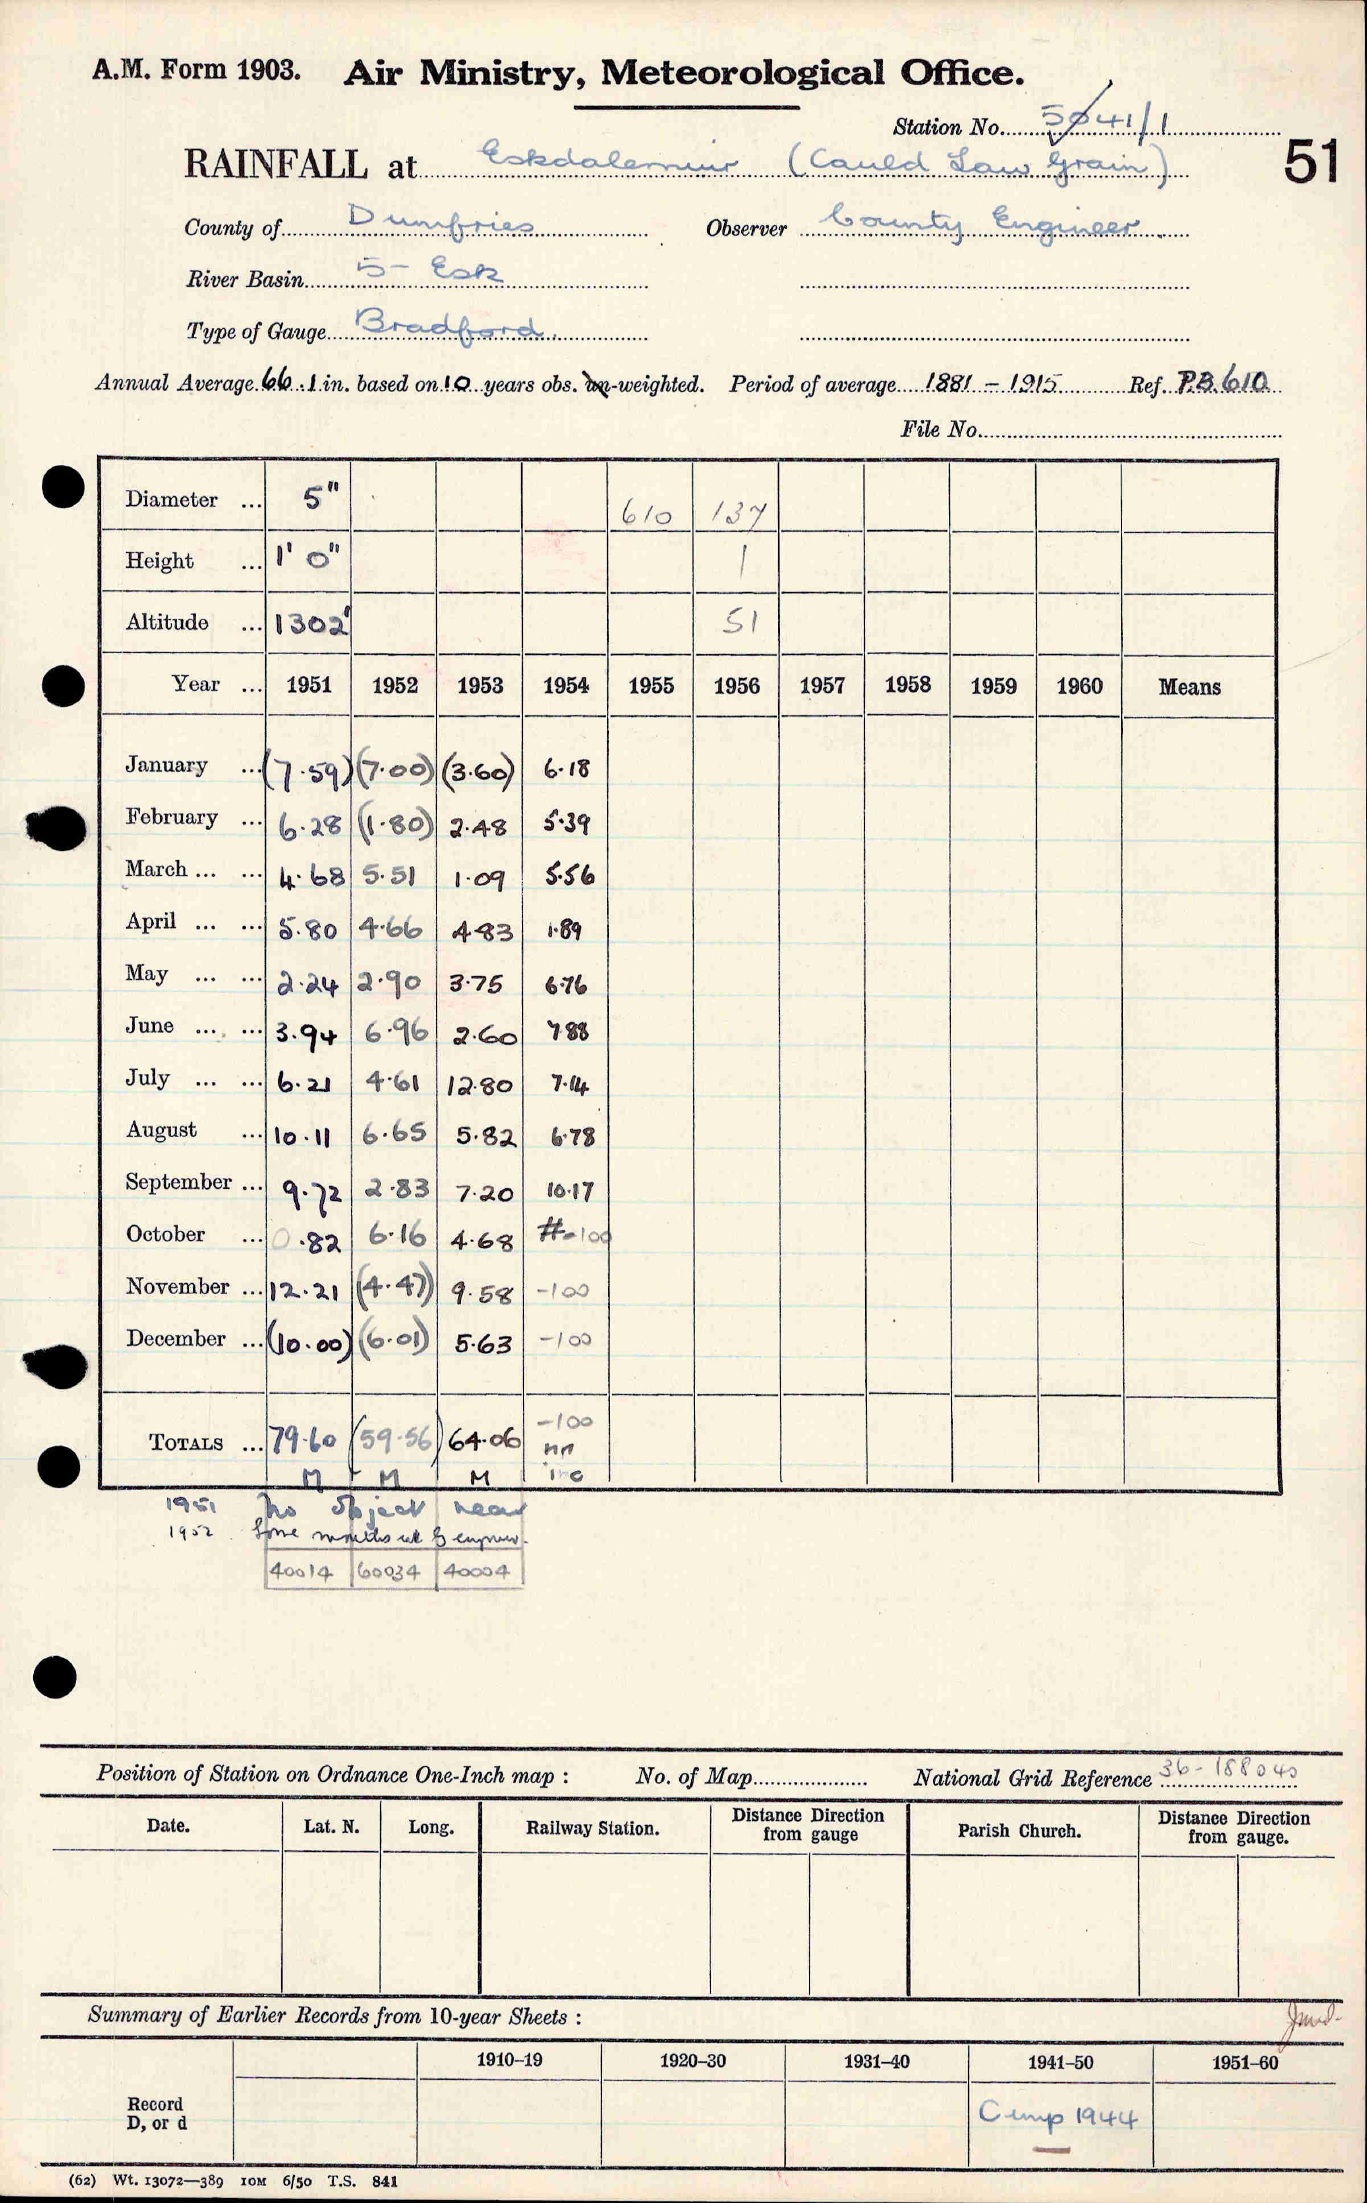 A.M. Form 1903. Air Ministry, Meteorological Office.
Station No. 5041/1
RAINFALL at Eskdalemuir (Cauld Law Grain) 51
County of Dumfries Observer County Engineer
River Basin 5 - Esk
Type of Gauge Bradford.
Annual Average 66.1 in. based on 10 years obs. un-weighted. Period of average 1881 - 1915 Ref. P.B. 610
File No.
Diameter ... 5" 610 137
Height ... 1' 0" 1
Altitude ... 1302' 51
Year ... 1951 1952 1953 1954 1955 1956 1957 1958 1959 1960 Means
January ... (7.59) (7.00) (3.60) 6.18
February ... 6.28 (1.80) 2.48 5.39
March ... ... 4.68 5.51 1.09 5.56
April ... ... 5.80 4.66 4.83 1.89
May ... ... 2.24 2.90 3.75 6.76
June ... ... 3.94 6.96 2.60 7.88
July ... ... 6.21 4.61 12.80 7.14
August ... 10.11 6.65 5.82 6.78
September ... 9.72 2.83 7.20 10.17
October ... 0.82 6.16 4.68 -100
November ... 12.21 (4.47) 9.58 -100
December ... (10.00) (6.01) 5.63 -100
TOTALS ... 79.60 (59.56) 64.06 -100
M M M inc
1951 No object near
1952 Some months est by engineer.
40014 60034 40004
Position of Station on Ordnance One-Inch map : No. of Map National Grid Reference 36-188040
Date. Lat. N. Long. Railway Station. Distance Direction from gauge Parish Church. Distance Direction from gauge.
Summary of Earlier Records from 10-year Sheets :
1910–19 1920–30 1931–40 1941–50 1951–60
Record
D, or d
Comp 1944
(62) Wt. 13072—389 10M 6/50 T.S. 841